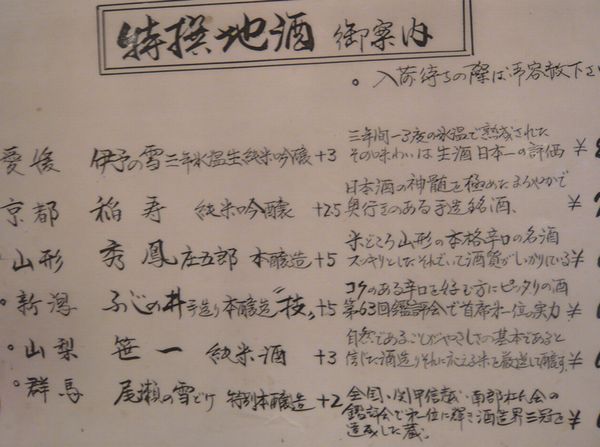 特撰地酒 御案内
。入荷待ちの際は御容赦下さい
愛媛 伊予の雪 三年氷温生純米吟醸 +3 三年間-3度の氷温で熟成された その味わいは生酒日本一の評価 ¥
京都 稲寿 純米吟醸 +2.5 日本酒の神髄を極めたまろやかで 奥行きのある手造り銘酒、 ¥
山形 秀鳳 庄五郎 本醸造 +5 米どころ山形の本格辛口の名酒 スッキリとしたそれでいて酒質がしっかりしている ¥
新潟 ふじの井 手造り本醸造"技" +5 コクのある辛口を好む方にピッタリの酒 第63回鑑評会で首席第一位の実力 ¥
山梨 笹一 純米酒 +3 自然であることがやさしさの基本であると 信じた酒造りそれに応える米を厳選して醸す、 ¥
群馬 尾瀬の雪どけ 特別本醸造 +2 全国・関甲信越・南部杜氏会の 鑑評会で第一位に輝き酒造界三冠を 達成した蔵.